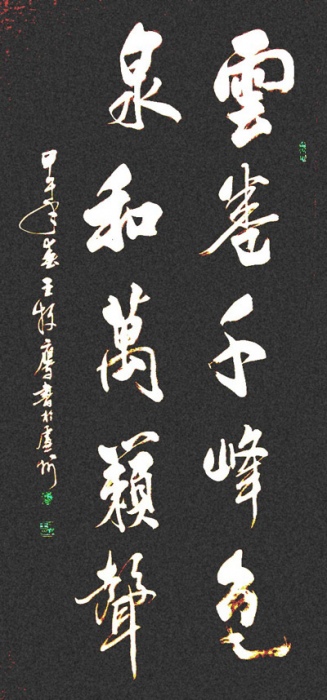 雲卷千峰色
泉和萬籟聲
甲午年春王牧鷹書於廬州